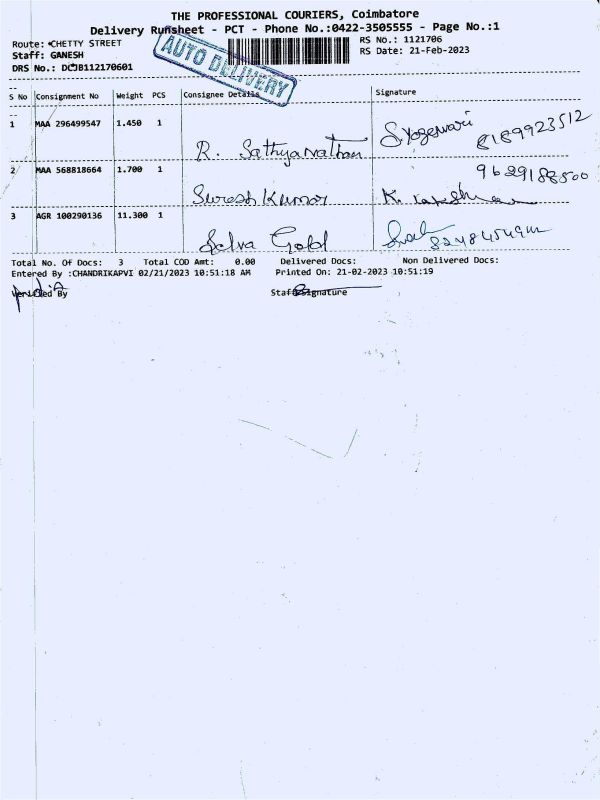 THE PROFESSIONAL COURIERS, Coimbatore
Delivery Runsheet - PCT - Phone No.:0422-3505555 - Page No.:1
Route: CHETTY STREET
RS No.: 1121706
Staff: GANESH
RS Date: 21-Feb-2023
DRS No.: DCJB112170601
AUTO DELIVERY
S No Consignment No Weight PCS Consignee Details Signature
1 MAA 296499547 1.450 1
R. Sathyanathan S.Yogeswari 8189923512
2 MAA 568818664 1.700 1
Suresh Kumar K. 9629188500
3 AGR 100290136 11.300 1
Selva Gold
Total No. Of Docs: 3 Total COD Amt: 0.00 Delivered Docs: Non Delivered Docs:
Entered By :CHANDRIKAPVI 02/21/2023 10:51:18 AM Printed On: 21-02-2023 10:51:19
Verified By Staff Signature